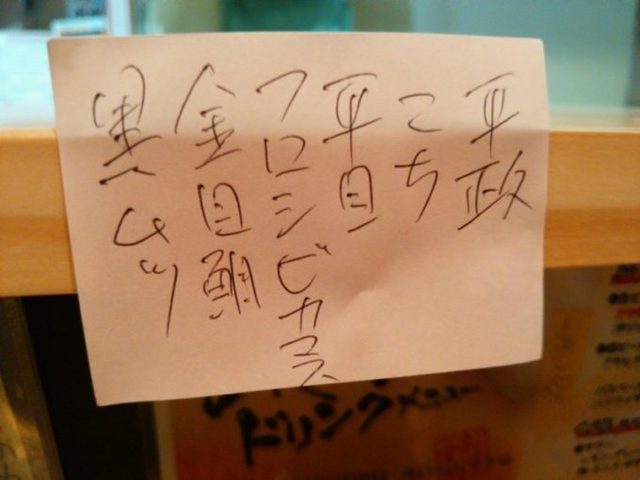 平政
こち
平目
クロシビカマス
金目鯛
黒ムツ
ドリンクメニュー